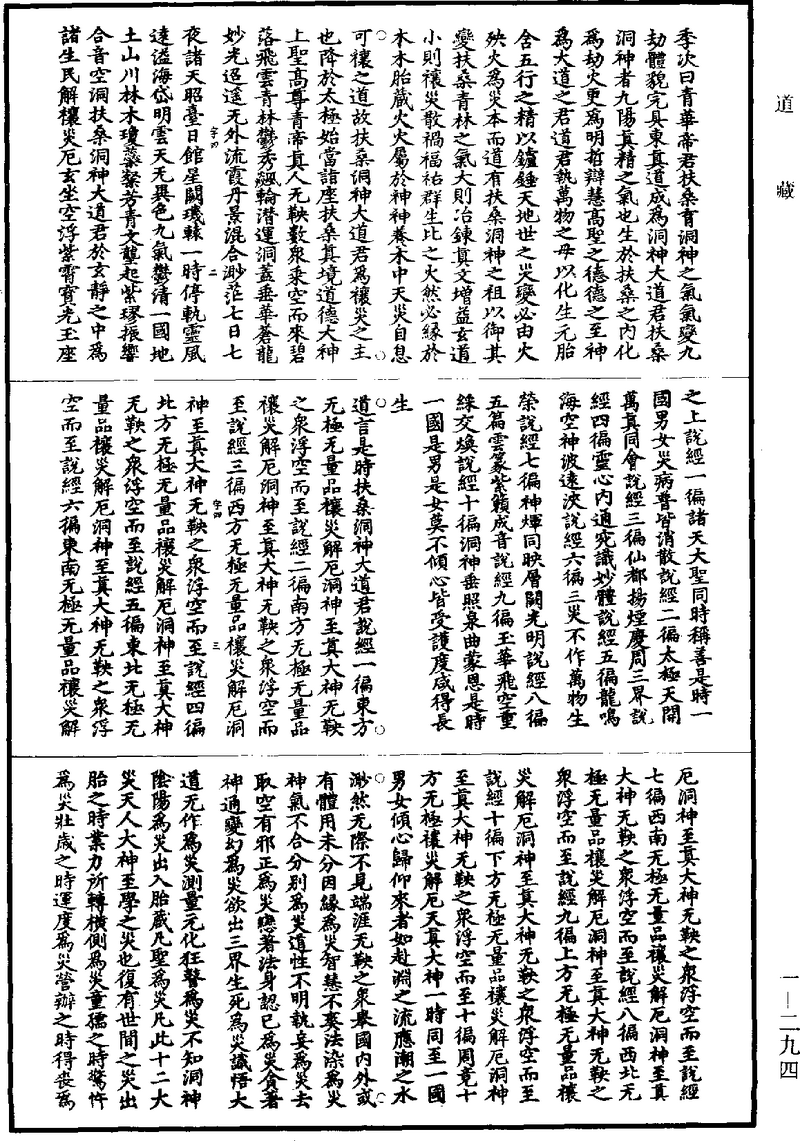 道藏
一—二九四
季次曰青華帝君扶桑育洞神之氣氣變九
劫體貌完具東真道成爲洞神大道君扶桑
洞神者九陽真精之氣也生於扶桑之內化
爲劫火更爲明哲辯慧高聖之德德之至神
爲大道之君道君執萬物之母以化生元胎
含五行之精以鑪錘天地世之災變必由火
殃火爲災本而道有扶桑洞神之祖以御其
變扶桑青林之氣大則冶鍊真文增益玄道
小則禳災散禍福祐群生比之火然必緣於
木木胎藏火火屬於神神養木中天災自息
可禳之道故扶桑洞神大道君爲禳災之主
也降於太極始當詣座扶桑真境道德大神
上聖高尊青帝真人无鞅數衆乘空而來碧
落飛雲青林鬱秀飈輪潜運洞蓋垂華蒼龍
妙光迢遥无外流霞丹景混合渺茫七日七
字四
二
夜諸天昭臺日館星闕璣轅一時停軌靈風
遠溢海岱明雲天无異色九氣鬱清一國地
土山川林木瓊蘂繁芳青文蘢起紫璆振響
合音空洞扶桑洞神大道君於玄靜之中爲
諸生民解禳災厄玄坐空浮紫霄寶光玉座
之上說經一徧諸天大聖同時稱善是時一
國男女災病普皆消散說經二徧太極天開
萬真同會說經三徧仙都揚煙慶周三界說
經四徧靈心內通究識妙體說經五徧龍鳴
海空神波遠泱說經六徧三災不作萬物生
榮說經七徧神煇同映層闕光明說經八徧
五篇雲篆紫籟成音說經九徧玉華飛空重
綵交煥說經十徧洞神垂照泉曲蒙恩是時
一國是男是女莫不傾心皆受護度咸得長
生
道言是時扶桑洞神大道君說經一徧東方
无極无量品禳災解厄洞神至真大神无鞅
之衆浮空而至說經二徧南方无極无量品
禳災解厄洞神至真大神无鞅之衆浮空而
至說經三徧西方无極无量品禳災解厄洞
字四
三
神至真大神无鞅之衆浮空而至說經四徧
北方无極无量品禳災解厄洞神至真大神
无鞅之衆浮空而至說經五徧東北无極无
量品禳災解厄洞神至真大神无鞅之衆浮
空而至說經六徧東南无極无量品禳災解
厄洞神至真大神无鞅之衆浮空而至說經
七徧西南无極无量品禳災解厄洞神至真
大神无鞅之衆浮空而至說經八徧西北无
極无量品禳災解厄洞神至真大神无鞅之
衆浮空而至說經九徧上方无極无量品禳
災解厄洞神至真大神无鞅之衆浮空而至
說經十徧下方无極无量品禳災解厄洞神
至真大神无鞅之衆浮空而至十徧周竟十
方无極禳災解厄天真大神一時同至一國
男女傾心歸仰來者如赴淵之流應潮之水
渺然无際不見端涯无鞅之衆舉國內外或
有體用未分因緣爲災智慧不喪法染爲災
神氣不合分別爲災道性不明執妄爲災去
取空有邪正爲災戀著法身認已爲災貪著
神通變幻爲災欲出三界生死爲災識悟大
道无作爲災測量元化狂瞽爲災不知洞神
陰陽爲災出入胎藏凡聖爲災凡此十二大
災天人大神至學之災也復有世間之災出
胎之時業力所轉橫側爲災童孺之時驚忤
爲災壯歲之時運度爲災營辦之時得喪爲